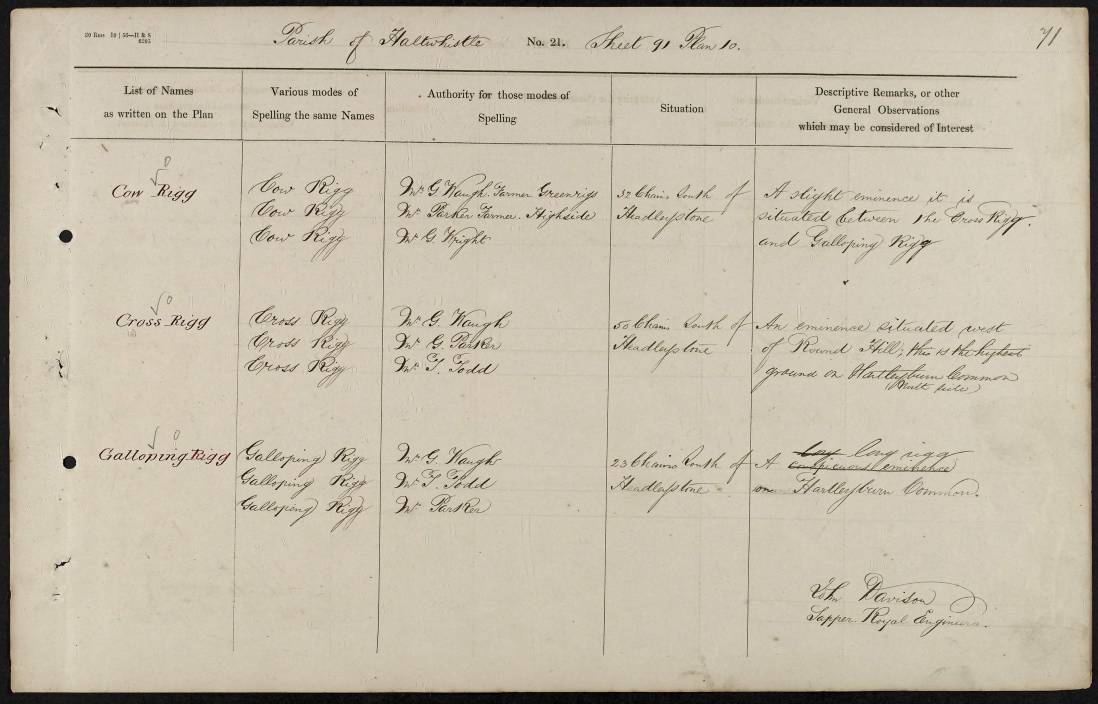 20 Rms 10 | 56—H & S
6205
Parish of Haltwhistle No. 21. Sheet 91 Plan 10.
71
List of Names
as written on the Plan
Various modes of
Spelling the same Names
Authority for those modes of
Spelling
Situation
Descriptive Remarks, or other
General Observations
which may be considered of Interest
Cow Rigg
Cow Rigg
Cow Rigg
Cow Rigg
Mr G Waugh. Farmer Greenrigg
Mr Parker Farmer. Highside
Mr G. Wright
32 Chains South of
Headleystone
A slight eminence it is
situated between the Cross Rigg.
and Galloping Rigg
Cross Rigg
Cross Rigg
Cross Rigg
Cross Rigg
Mr G. Waugh
Mr G. Parker
Mr T. Todd
50 Chains South of
Headleystone
An eminence situated west
of Round Hill, this is the highest
ground on Hartleyburn Common
(North side)
Galloping Rigg
Galloping Rigg
Galloping Rigg
Galloping Rigg
Mr G. Waugh
Mr T. Todd
Mr Parker
23 Chains South of
Headleystone
long rigg
A conspicuous eminence
on Hartleyburn Common.
John Davison
Sapper Royal Engineers.